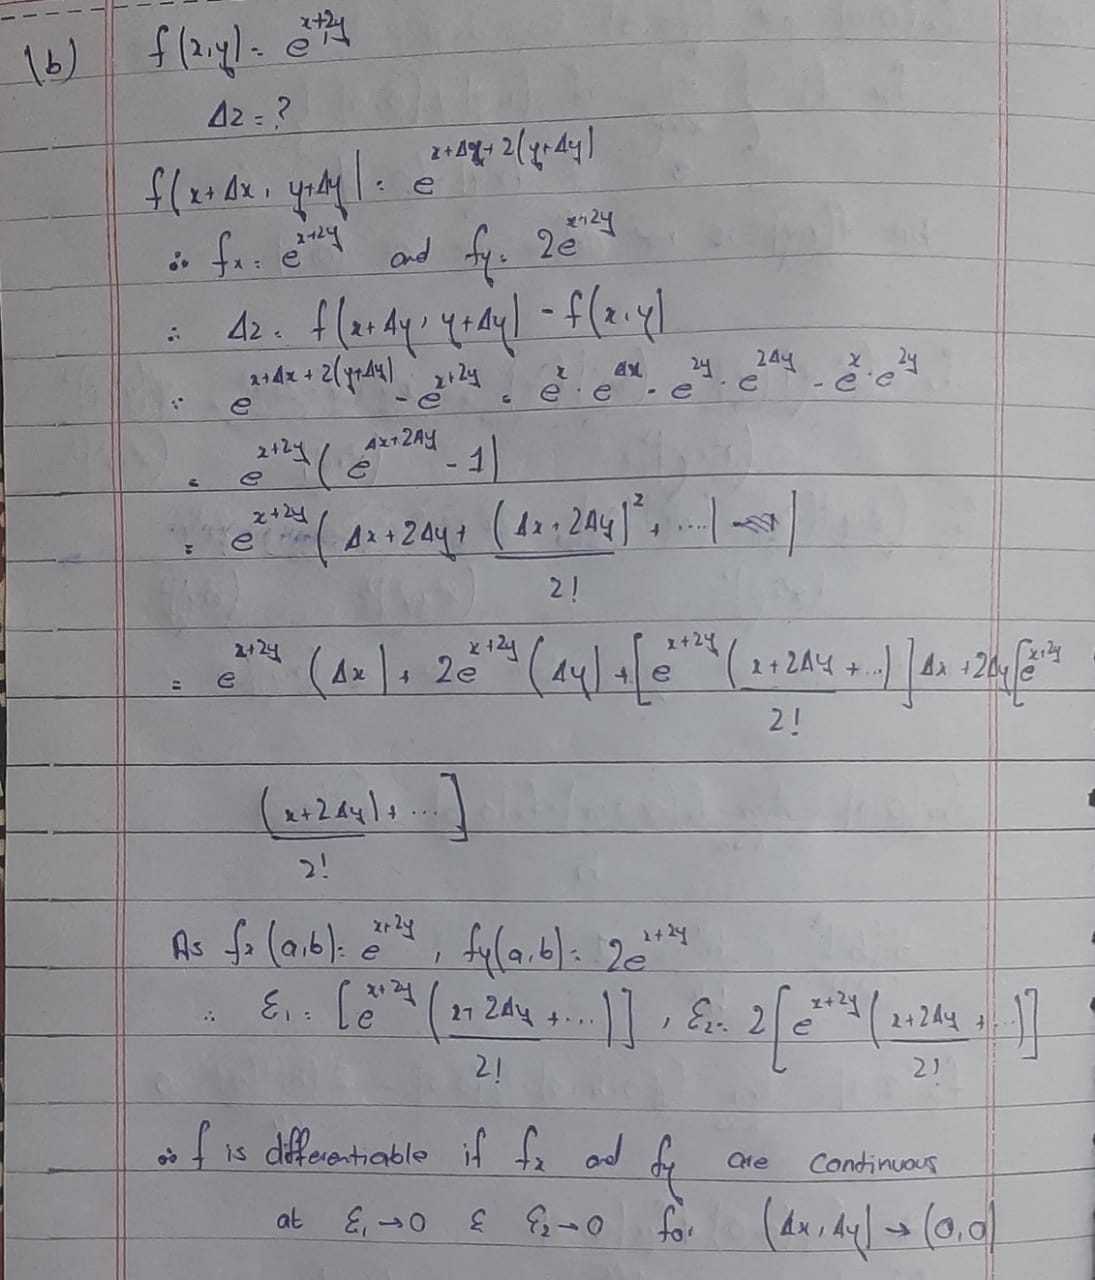 (b) f(x,y) = e^{x+2y}
Δz = ?
f(x+Δx, y+Δy) = e^{x+Δx+2(y+Δy)}
∴ fx = e^{x+2y} and fy = 2e^{x+2y}
∴ Δz = f(x+Δy, y+Δy) - f(x,y)
∵ e^{x+Δx+2(y+Δy)} - e^{x+2y} = e^x · e^{Δx} · e^{2y} · e^{2Δy} - e^x · e^{2y}
= e^{x+2y} (e^{Δx+2Δy} - 1)
= e^{x+2y} (Δx + 2Δy + (Δx+2Δy)^2/2! + ....)
= e^{x+2y} (Δx) + 2e^{x+2y} (Δy) + [e^{x+2y} (x+2Δy + ...)/2!] Δx + 2Δy [e^{x+2y}
(x+2Δy)/2! + ...]
As fx(a,b) = e^{x+2y}, fy(a,b) = 2e^{x+2y}
∴ ε₁ = [e^{x+2y} (x+2Δy/2! + ...)], ε₂ = 2[e^{x+2y} (x+2Δy/2! + ...)]
∴ f is differentiable if fx and fy are continuous
at ε₁→0 & ε₂→0 for (Δx, Δy) → (0,0)